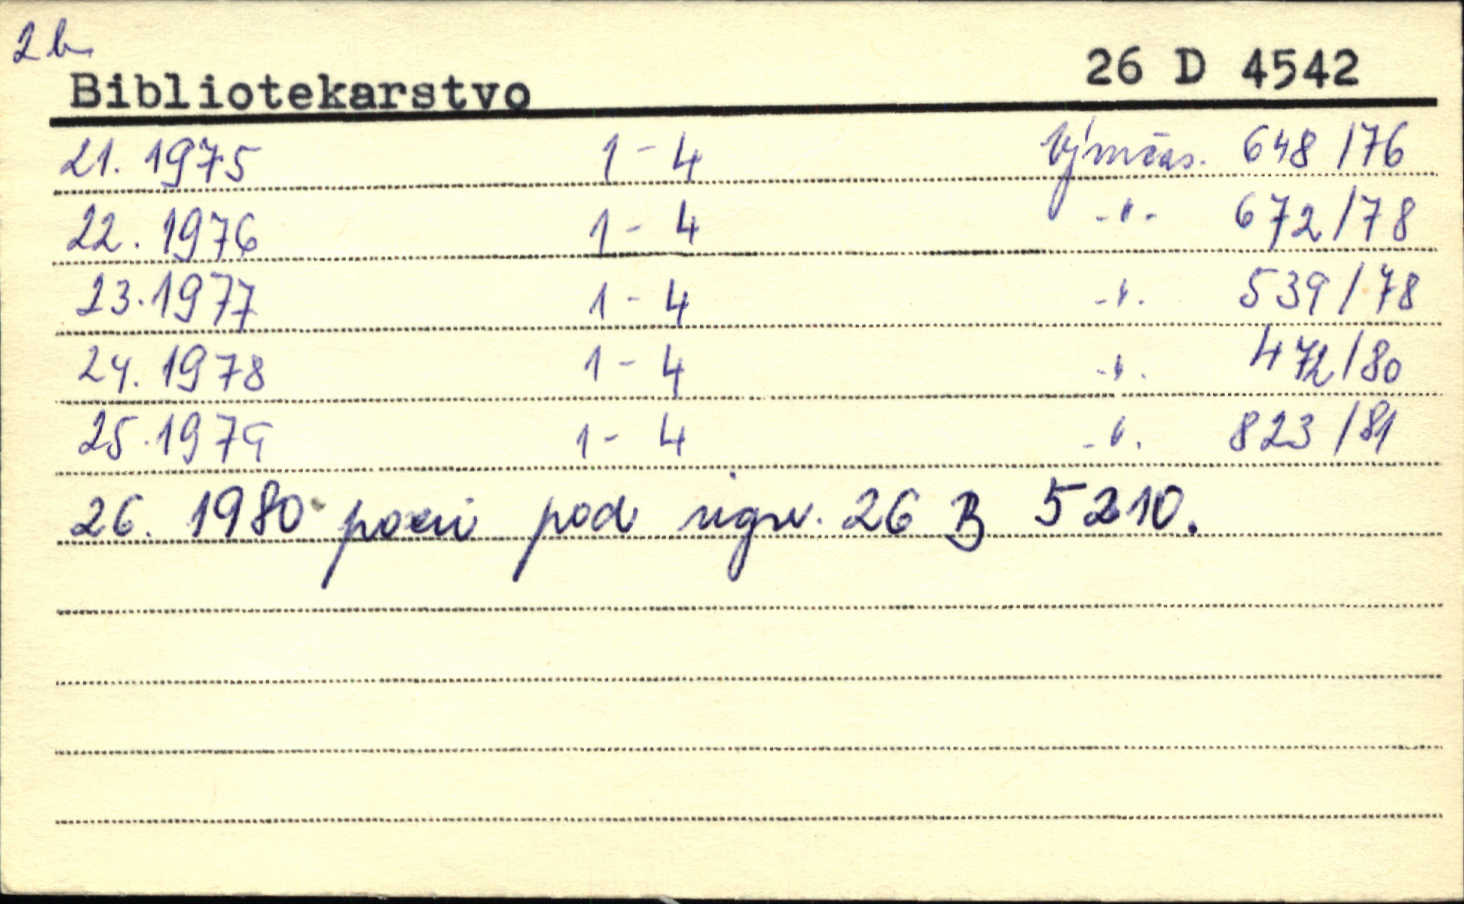 2b
Bibliotekarstvo 26 D 4542
21. 1975 1-4 Výměčas. 648/76
22. 1976 1-4 -"- 672/78
23. 1977 1-4 -"- 539/78
24. 1978 1-4 -"- 472/80
25. 1979 1-4 -"- 823/81
26. 1980 pod sign. 26 B 5210.